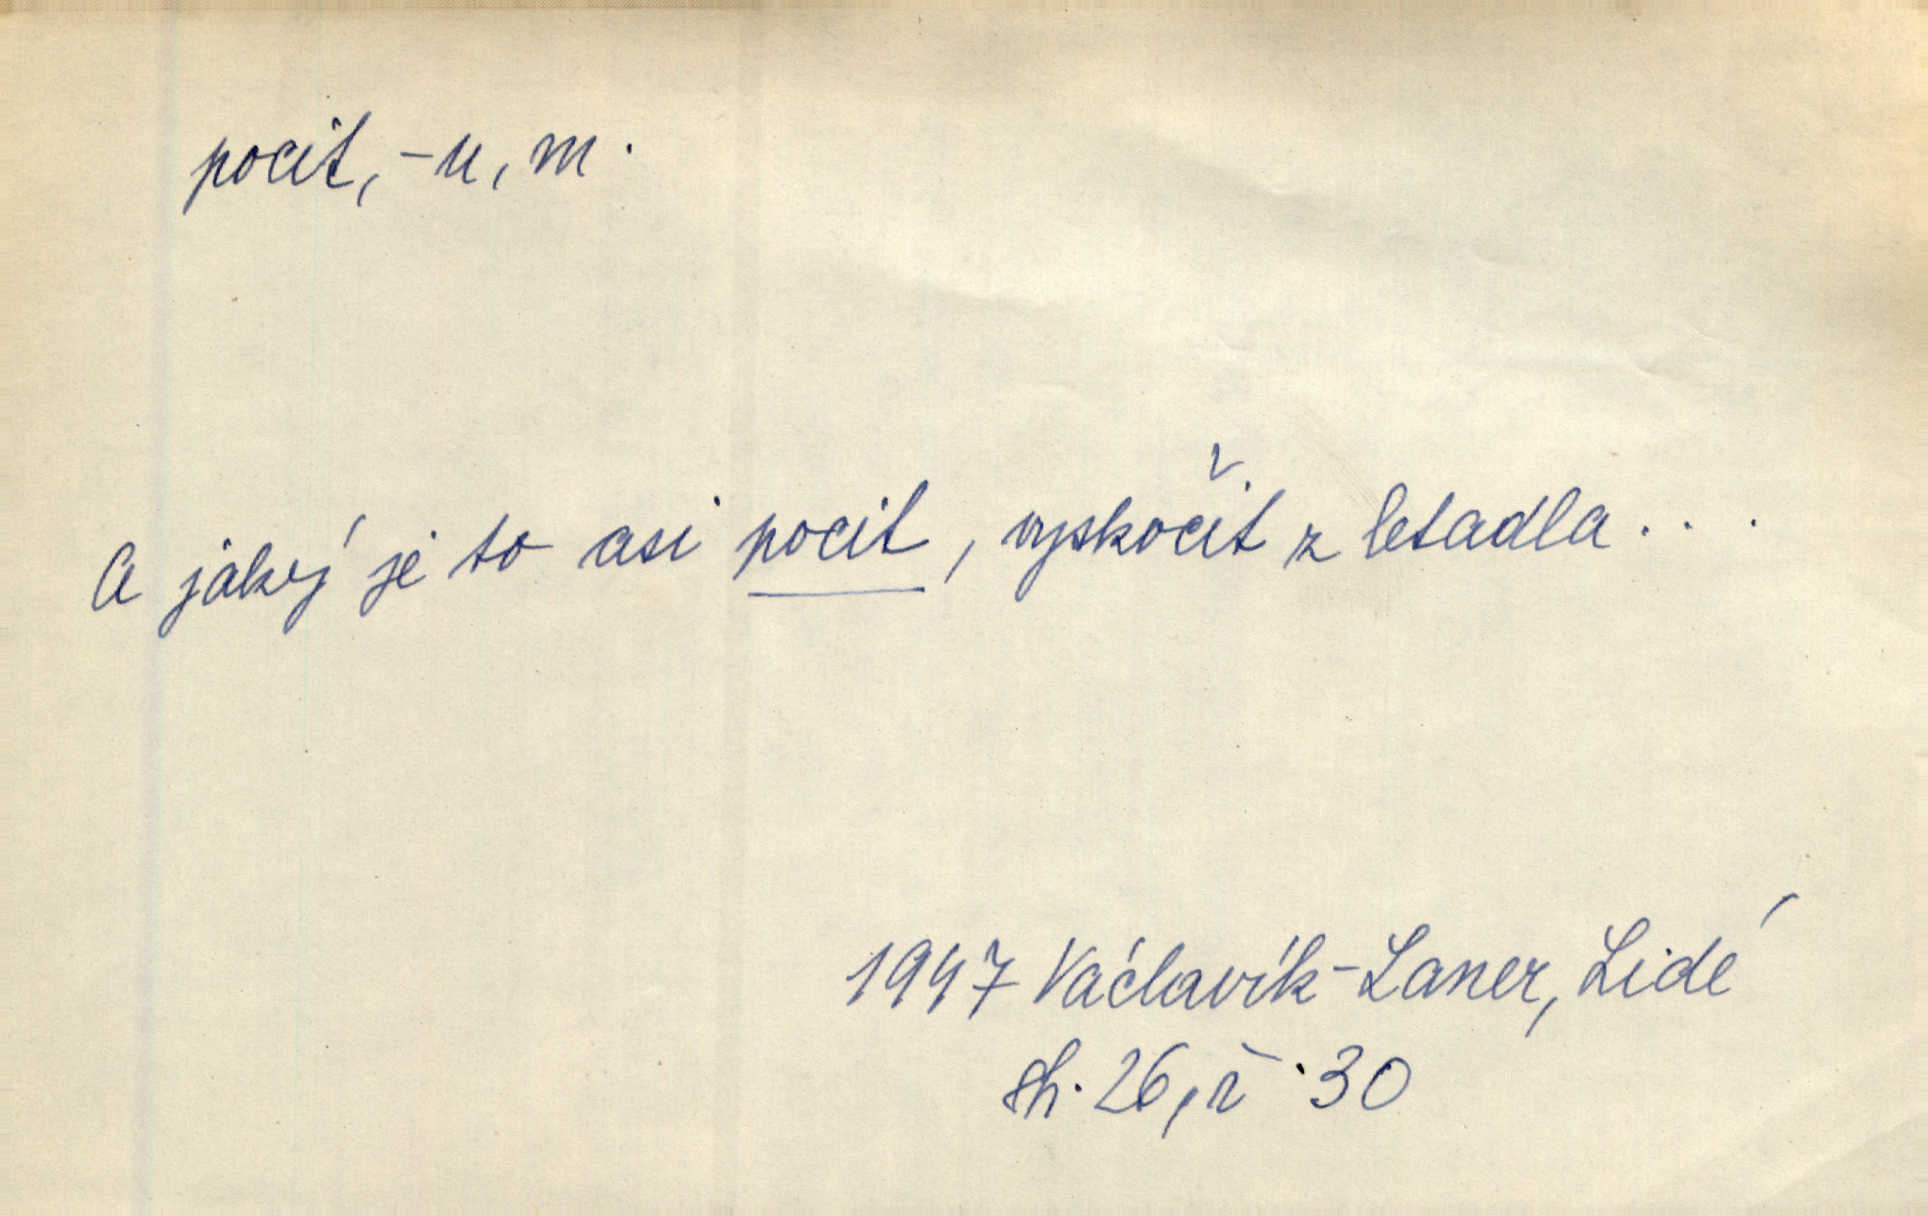 pocit, -u, m.
A jaký je to asi pocit, vyskočit z letadla...
1947 Václavík-Laner, Lidé
str. 26, ř. 30